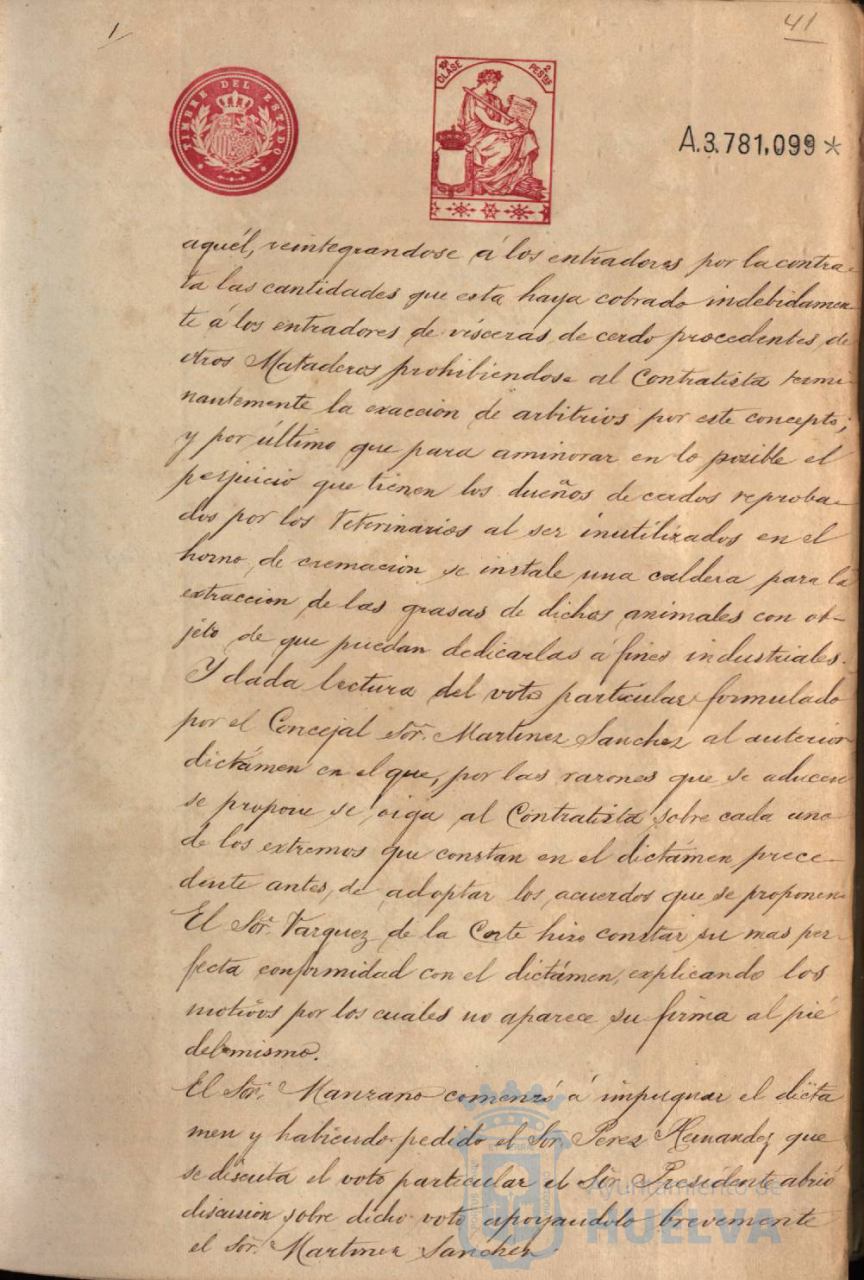 1
41
TIMBRE DEL ESTADO
10ª CLASE
2 PESTAS
A.3.781,099*
aquél, reintegrandose á los entradores por la contra-
ta las cantidades que esta haya cobrado indebidamen-
te á los entradores de vísceras de cerdo procedentes de
otros Mataderos prohibiendose al Contratista termi-
nantemente la exacción de arbitrios por este concepto;
y por último que para aminorar en lo posible el
perjuicio que tienen los dueños de cerdos reproba-
dos por los Veterinarios al ser inutilizados en el
horno de cremación se instale una caldera para la
extracción de las grasas de dichos animales con ob-
jeto de que puedan dedicarlas á fines industriales.
Y dada lectura del voto particular formulado
por el Concejal Sor. Martinez Sanchez al anterior
dictámen en el que, por las razones que se aducen
se propone se oiga al Contratista sobre cada uno
de los extremos que constan en el dictámen prece-
dente antes de adoptar los acuerdos que se proponen
El Sor. Vazquez de la Corte hizo constar su mas per-
fecta conformidad con el dictámen, explicando los
motivos por los cuales no aparece su firma al pié
del mismo.
El Sor. Manzano comenzó á impugnar el dicta
men y habiendo pedido el Sor. Perez Hernandez que
se discuta el voto particular el Sor. Presidente abrió
discusión sobre dicho voto apoyandolo brevemente
el Sor. Martinez Sanchez.
Ayuntamiento de
HUELVA